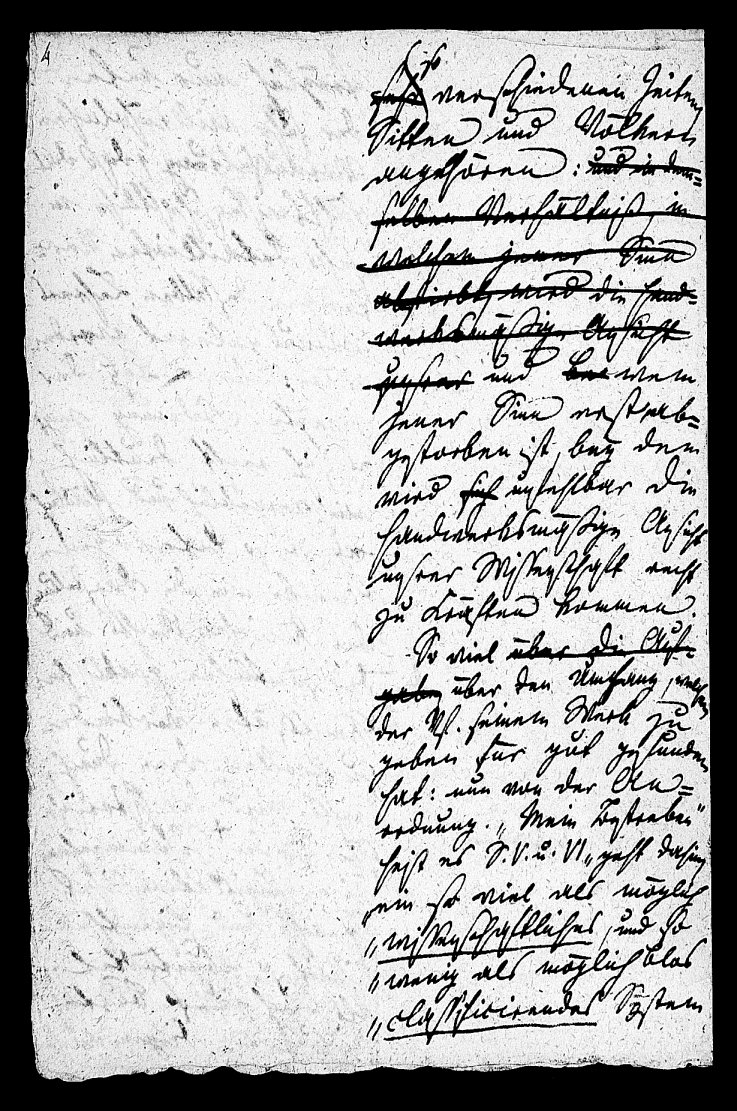 4
so
sehr verschiedenen Zeiten,
Sitten und Völkern
angehören: und in dem=
selben Verhältniß, in
welchem jener Sinn
abstirbt, wird die hand=
werksmäßige Ansicht
unsrer und bei wem
jener Sinn erst ab=
gestorben ist, bey dem
wird sich unfehlbar die
handwerksmäßige Ansicht
unsrer Wissenschaft recht
zu Kräften kommen.
So viel über die Auf=
gabe, über den Umfang, welchen
der Vf. seinem Werk zu
geben für gut gefunden
hat: nun von der An=
ordnung. „Mein Bestreben"
heißt es S. V. u. VI „geht dahin,
„ein so viel als möglich
„wissenschaftliches, und so
„wenig als möglich blos
„classificirendes System